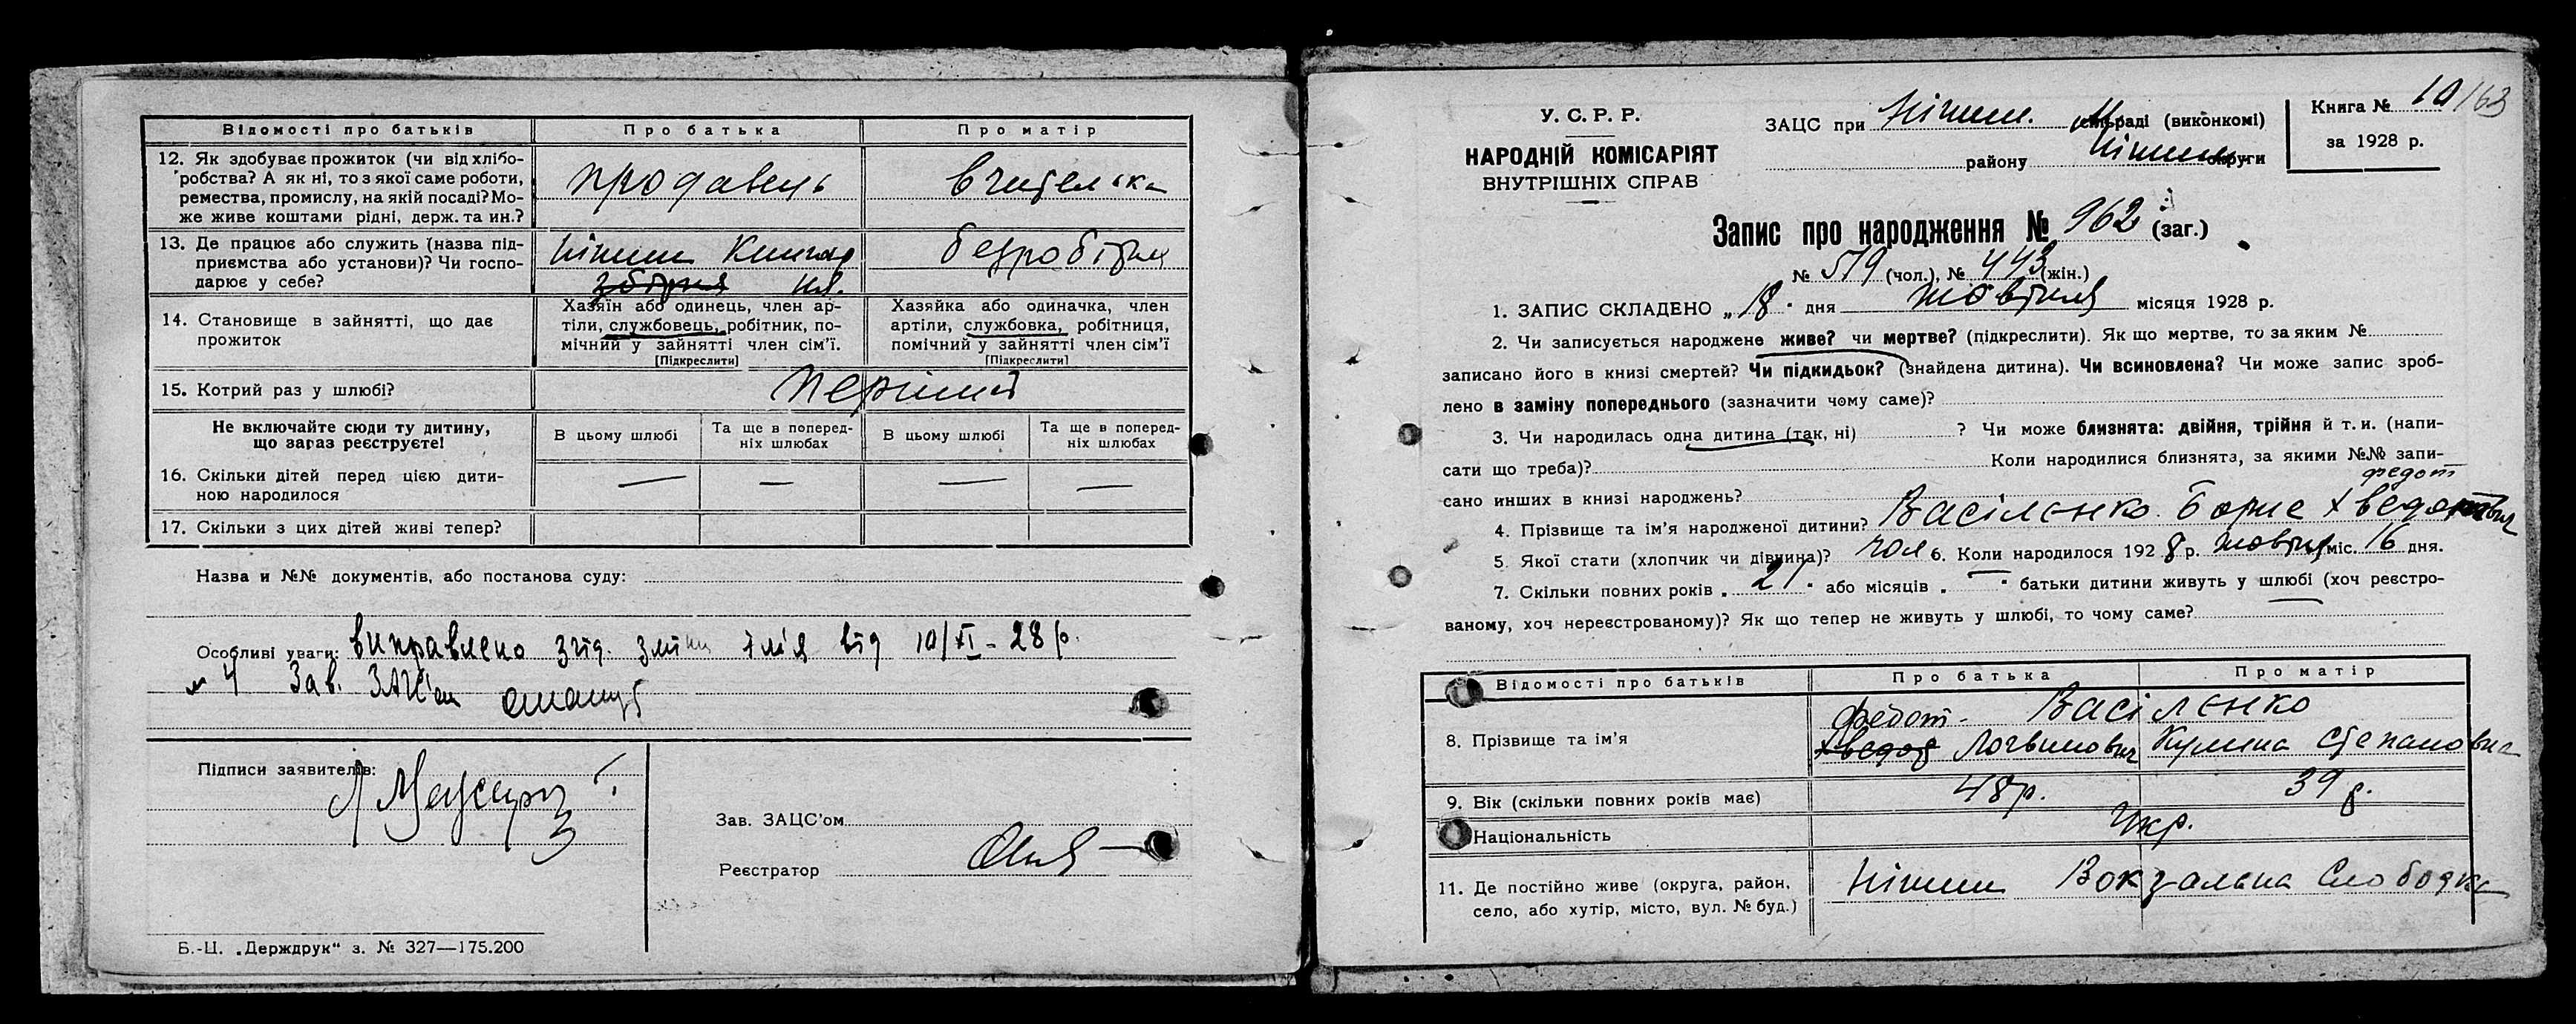 Відомості про батьків
Про батька
Про матір
12. Як здобуває прожиток (чи від хлібо-
робства? А як ні, то з якої саме роботи,
ремества, промислу, на якій посаді? Мо-
же живе коштами рідні, держ. та ин.?
продавець
вчителька
13. Де працює або служить (назва під-
приємства або установи)? Чи госпо-
дарює у себе?
Ніжин
безробітня
14. Становище в зайнятті, що дає
прожиток
Хазяїн або одинець, член ар-
тіли, службовець, робітник, по-
мічний у зайнятті член сім'ї.
[Підкреслити]
Хазяйка або одиначка, член
артіли, службовка, робітниця,
помічний у зайнятті член сім'ї
[Підкреслити]
15. Котрий раз у шлюбі?
перший
Не включайте сюди ту дитину,
що зараз реєструєте!
В цьому шлюбі
Та ще в поперед-
ніх шлюбах
В цьому шлюбі
Та ще в поперед-
ніх шлюбах
16. Скільки дітей перед цією дити-
ною народилося
— — — —
17. Скільки з цих дітей живі тепер?
Назва и №№ документів, або постанова суду:
Особливі уваги: виправлено згід. зміни ім'я від 10/XI-28 р.
№ 4 Зав. ЗАГС'ом
Підписи заявителів:
Зав. ЗАЦС'ом
Реєстратор
Б.-Ц. „Держдрук“ з. № 327—175.200
У. С. Р. Р.
НАРОДНІЙ КОМІСАРІЯТ
ВНУТРІШНІХ СПРАВ
ЗАЦС при Ніжин. М сільраді (виконкомі)
району Ніжин. округи
Книга № 10/63
за 1928 р.
Запис про народження № 962 (заг.)
№ 519 (чол.), № 443 (жін.)
1. ЗАПИС СКЛАДЕНО „18“ дня жовтня місяця 1928 р.
2. Чи записується народжене живе? чи мертве? (підкреслити). Як що мертве, то за яким №
записано його в книзі смертей? Чи підкидьок? (знайдена дитина). Чи всиновлена? Чи може запис зроб-
лено в заміну попереднього (зазначити чому саме)?
3. Чи народилась одна дитина (так, ні) ? Чи може близнята: двійня, трійня й т. и. (напи-
сати що треба)? Коли народилися близнята, за якими №№ запи-
сано инших в книзі народжень?
федот
4. Прізвище та ім'я народженої дитини? Васілєнко Борис Хведотович
5. Якої стати (хлопчик чи дівчина)? чол 6. Коли народилося 1928 р. жовтня міс. 16 дня.
7. Скільки повних років „21“ або місяців „—“ батьки дитини живуть у шлюбі (хоч реєстро-
ваному, хоч нереєстрованому)? Як що тепер не живуть у шлюбі, то чому саме?
Відомості про батьків
Про батька
Про матір
8. Прізвище та ім'я
Федот- Васілєнко
Хведот Логвинович
Кулина Степановна
9. Вік (скільки повних років має)
48р.
39 р.
Національність
Укр.
11. Де постійно живе (округа, район,
село, або хутір, місто, вул. № буд.)
Ніжин Вокзальна Слободка